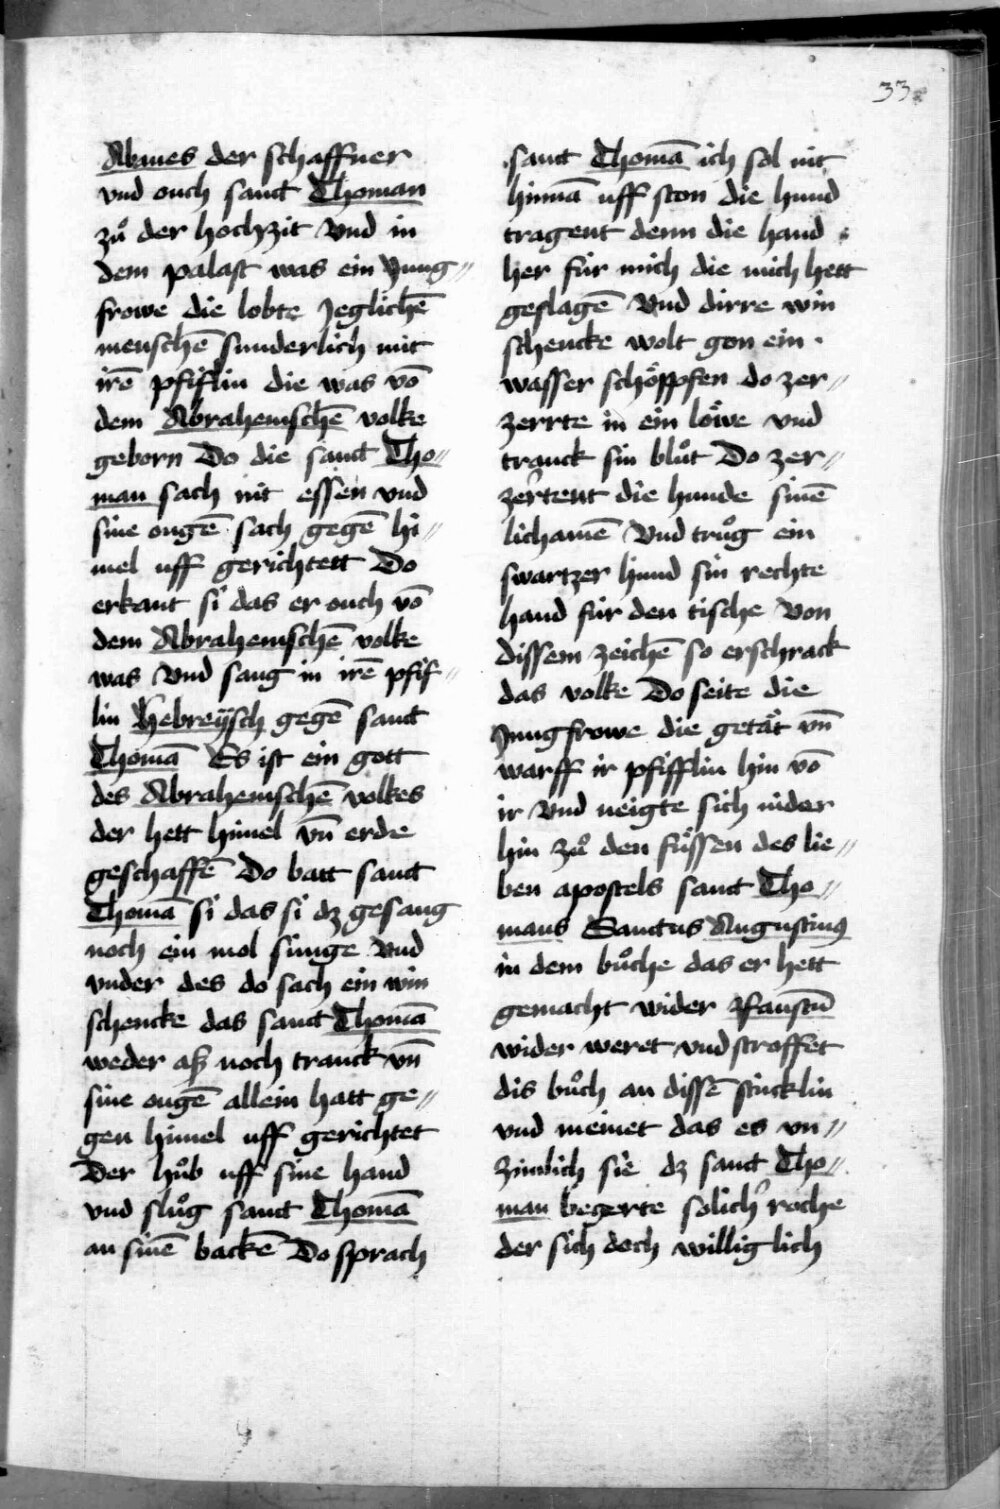 33
Abanes der schaffner
vnd ouch sanct Thoman
zuͦ der hochzit Vnd in
dem palast was ein Jung〃
frowe die lobte Jeglichē
menschē sunderlich mit
irē pfiflin die was vō
dem Abrahemschē volke
geborn Do die sanct Tho〃
man sach nit essen vnd
sine ougē sach gegē hi〃
mel uff gerichtett Do
erkant si das er ouch vō
dem Abrahemschē volke
was Vnd sang in irē pfif〃
lin Hebreÿsch gegē sanct
Thomā Es ist ein gott
des Abrahemschē volkes
der hett himel vn̄ erde
geschaffē Do batt sanct
Thomā si das si dz gesang
noch ein mol singe Vnd
vnder des do sach ein win
schencke das sanct Thomā
weder aß noch tranck vn̄
sine ougē allein hatt ge〃
gen himel uff gerichtet
Der huͦb uff sine hand
vnd sluͦg sanct Thomā
an sinē backē Do sprach
sanct Thomā ich sol nit
hinnā uff ston die hund
tragent denn die hand
her für mich die mich hett
geslagē Vnd dirre win
schencke wolt gon ein
wasser schöppfen do zer〃
zerrte in ein löwe vnd
tranck sin bluͦt Do zer〃
zertent die hunde sinē
lichamē Vnd truͦg ein
swartzer hund sin rechte
hand für den tische Von
dissem zeichē so erschrack
das volke Do seite die
Jungfrowe die getät vn̄
warff ir pfifflin hin vō
ir Vnd neigte sich nider
hin zuͦ den füssen des lie〃
ben apostels sanct Tho〃
mans Sanctus Augustinꝰ
in dem buͦche das er hett
gemacht wider faustū
wider weret vnd stroffet
dis buͦch an dissē stücklin
vnd meinet das es vn〃
zimlich sie dz sanct Tho〃
man begerte solicher roche
der sich doch williglich